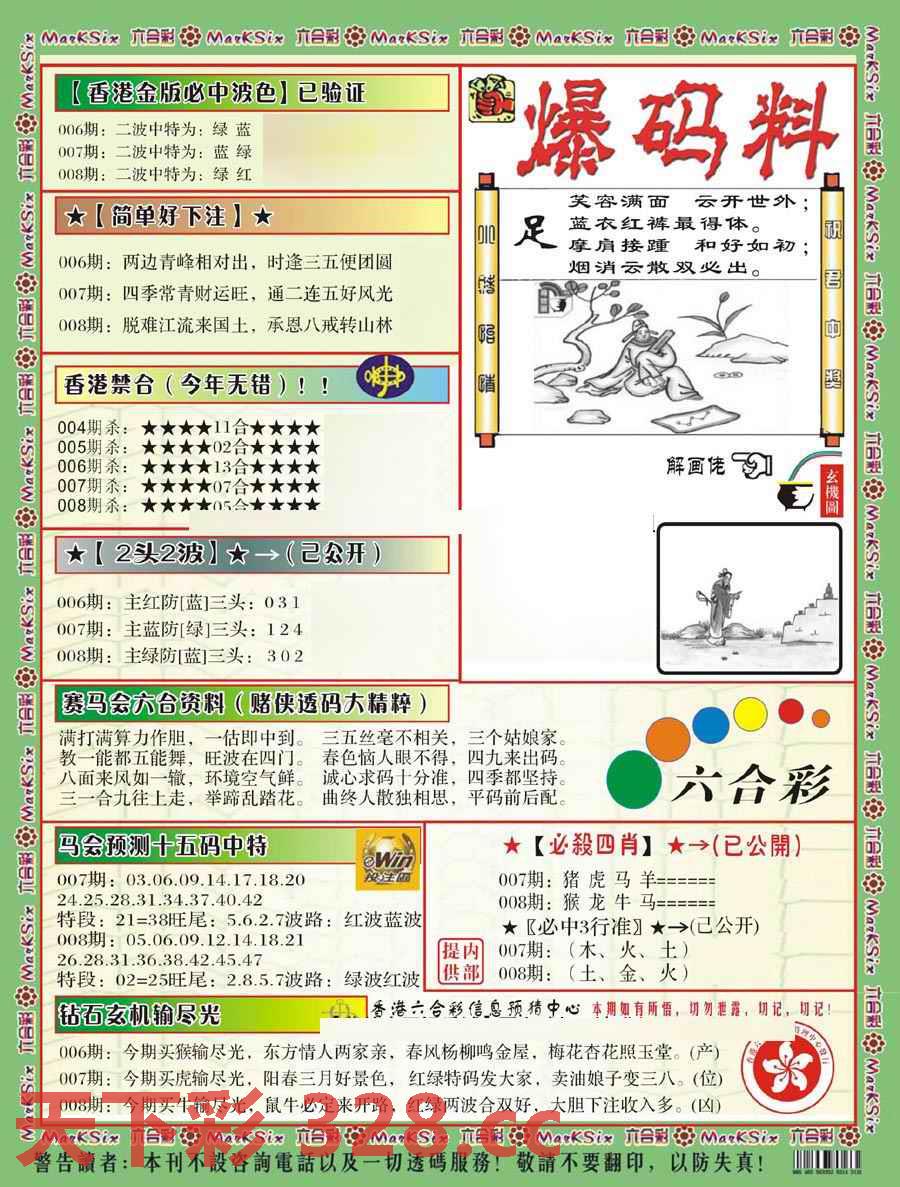 MarKSix 六合彩 MarKSix 六合彩 MarKSix 六合彩 MarKSix 六合彩 MarKSix 六合彩
【香港金版必中波色】已验证
006期：二波中特为：绿 蓝
007期：二波中特为：蓝 绿
008期：二波中特为：绿 红
★【简单好下注】★
006期：两边青峰相对出，时逢三五便团圆
007期：四季常青财运旺，通二连五好风光
008期：脱难江流来国土，承恩八戒转山林
香港禁合（今年无错）！！
004期杀：★★★★11合★★★★
005期杀：★★★★02合★★★★
006期杀：★★★★13合★★★★
007期杀：★★★★07合★★★★
008期杀：★★★★05合★★★★
★【 2头2波】★→（已公开）
006期：主红防[蓝]三头：031
007期：主蓝防[绿]三头：124
008期：主绿防[蓝]三头：302
爆码料
足
笑容满面 云开世外；
蓝衣红裤最得体。
摩肩接踵 和好如初；
烟消云散双必出。
祝君中奖
解画佬
玄機圖
赛马会六合资料（赌侠透码大精粹）
满打满算力作胆，一估即中到。 三五丝毫不相关，三个姑娘家。
教一能都五能舞，旺波在四门。 春色恼人眼不得，四九来出码。
八面来风如一辙，环境空气鲜。 诚心求码十分准，四季都坚持。
三一合九往上走，举蹄乱踏花。 曲终人散独相思，平码前后配。
六合彩
马会预测十五码中特
eWin
投注區
007期：03.06.09.14.17.18.20
24.25.28.31.34.37.40.42
特段：21=38旺尾：5.6.2.7波路：红波蓝波
008期：05.06.09.12.14.18.21
26.28.31.36.38.42.45.47
特段：02=25旺尾：2.8.5.7波路：绿波红波
★【必殺四肖】★→(已公開)
007期：猪 虎 马 羊======
008期：猴 龙 牛 马======
★〖必中3行准〗★→(已公开)
007期：（木、火、土）
008期：（土、金、火）
内部提供
钻石玄机输尽光
香港六合彩信息预猜中心 本期如有所悟，切勿泄露，切记，切记！
006期：今期买猴输尽光，东方情人两家亲，春风杨柳鸣金屋，梅花杏花照玉堂。(产)
007期：今期买虎输尽光，阳春三月好景色，红绿特码发大家，卖油娘子变三八。(位)
008期：今期买牛输尽光，鼠牛必定来开路，红绿两波合双好，大胆下注收入多。(凶)
天下彩 328.cc
MarKSix 六合彩 MarKSix 六合彩 MarKSix 六合彩 MarKSix 六合彩 MarKSix 六合彩
警告讀者：本刊不設咨詢電話以及一切透碼服務！敬請不要翻印，以防失真！